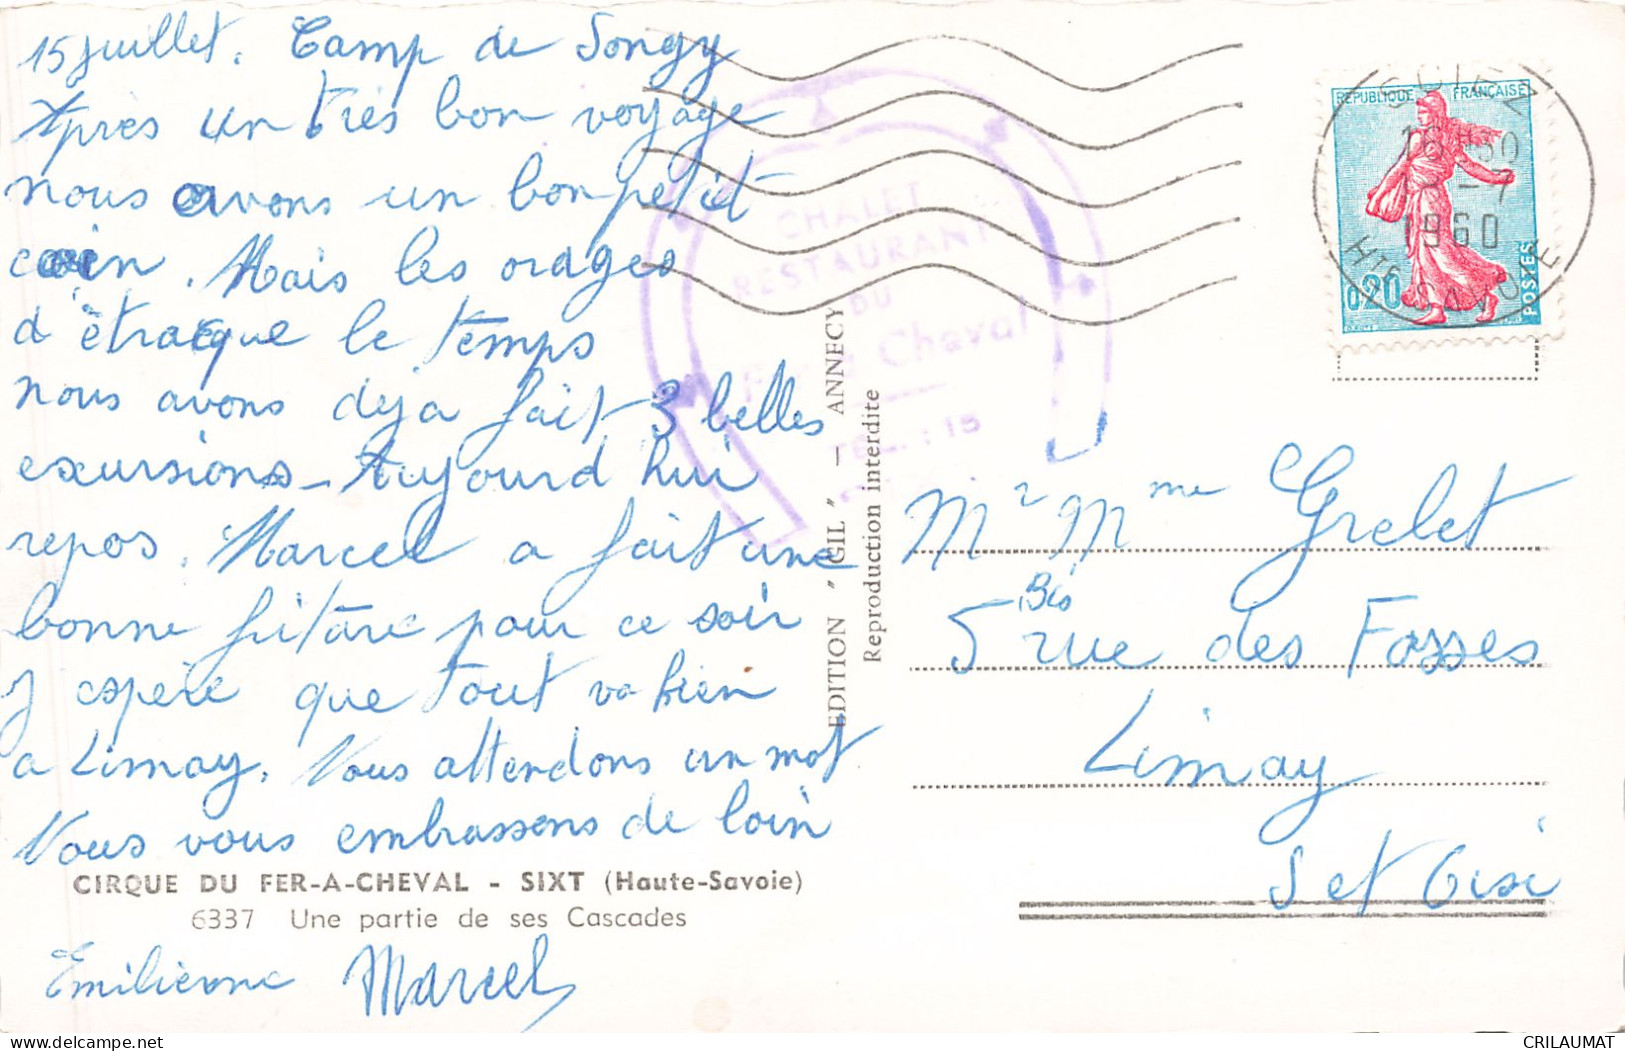 15 juillet. Camp de Songy
Après un très bon voyage
nous avons un bon petit
coin. Mais les orages
d'étraque le temps
nous avons deja fait 3 belles
exursions - Aujourd hui
repos. Marcel a fait une
bonne friture pour ce soir
J espère que tout va bien
a Limay. Nous attendons un mot
Nous vous embrassons de loin
CIRQUE DU FER-A-CHEVAL - SIXT (Haute-Savoie)
6337 Une partie de ses Cascades
Emilienne Marcel
EDITION "GIL" - ANNECY
Reproduction interdite
CHALET
RESTAURANT
DU
Fer à Cheval
TEL. : 15
REPUBLIQUE FRANÇAISE
0,20
POSTES
SCIEZ
18H30
18-7
1960
HTE SAVOIE
Mr Mme Grelet
5 Bis rue des Fosses
Limay
S et Oise
CRILAUMAT